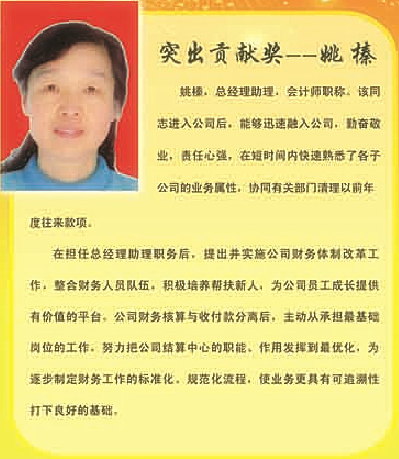 突出贡献奖——姚榛
姚榛，总经理助理，会计师职称。该同
志进入公司后，能够迅速融入公司，勤奋敬
业，责任心强，在短时间内快速熟悉了各子
公司的业务属性，协同有关部门清理以前年
度往来款项。
在担任总经理助理职务后，提出并实施公司财务体制改革工
作，整合财务人员队伍，积极培养帮扶新人，为公司员工成长提供
有价值的平台。公司财务核算与收付款分离后，主动从承担最基础
岗位的工作，努力把公司结算中心的职能、作用发挥到最优化，为
逐步制定财务工作的标准化、规范化流程，使业务更具有可追溯性
打下良好的基础。